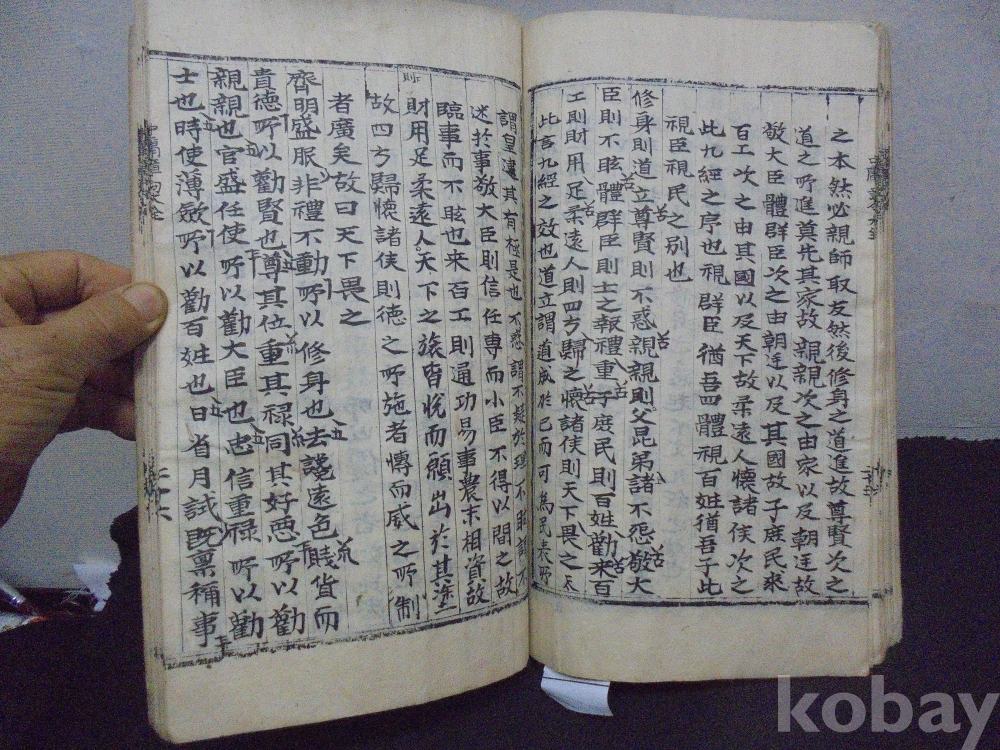 之本然必親師取友然後修身之道進故尊賢次之
道之所進莫先其家故親親次之由家以及朝廷故
敬大臣體群臣次之由朝廷以及其國故子庶民來
百工次之由其國以及天下故柔遠人懷諸侯次之
此九經之序也視群臣猶吾四體視百姓猶吾子此
視臣視民之別也
修身則道立尊賢則不惑親親則父昆弟諸不怨敬大
臣則不眩體群臣則士之報禮重子庶民則百姓勸來百
工則財用足柔遠人則四方歸之懷諸侯則天下畏之
此言九經之效也道立謂道成於己而可為民表所
謂皇建其有極是也不惑謂不疑於理不眩謂不
迷於事敬大臣則信任專而小臣不得以間之故
臨事而不眩也来百工則通功易事農末相資故
財用足柔遠人則天下之旅皆悅而願出於其塗
故四方歸懷諸侯則德之所施者博而威之所制
者廣矣故曰天下畏之
齊明盛服非禮不動所以修身也去讒遠色賤貨而
貴德所以勸賢也尊其位重其祿同其好惡所以勸
親親也官盛任使所以勸大臣也忠信重祿所以勸
士也時使薄斂所以勸百姓也日省月試既稟稱事
kobay